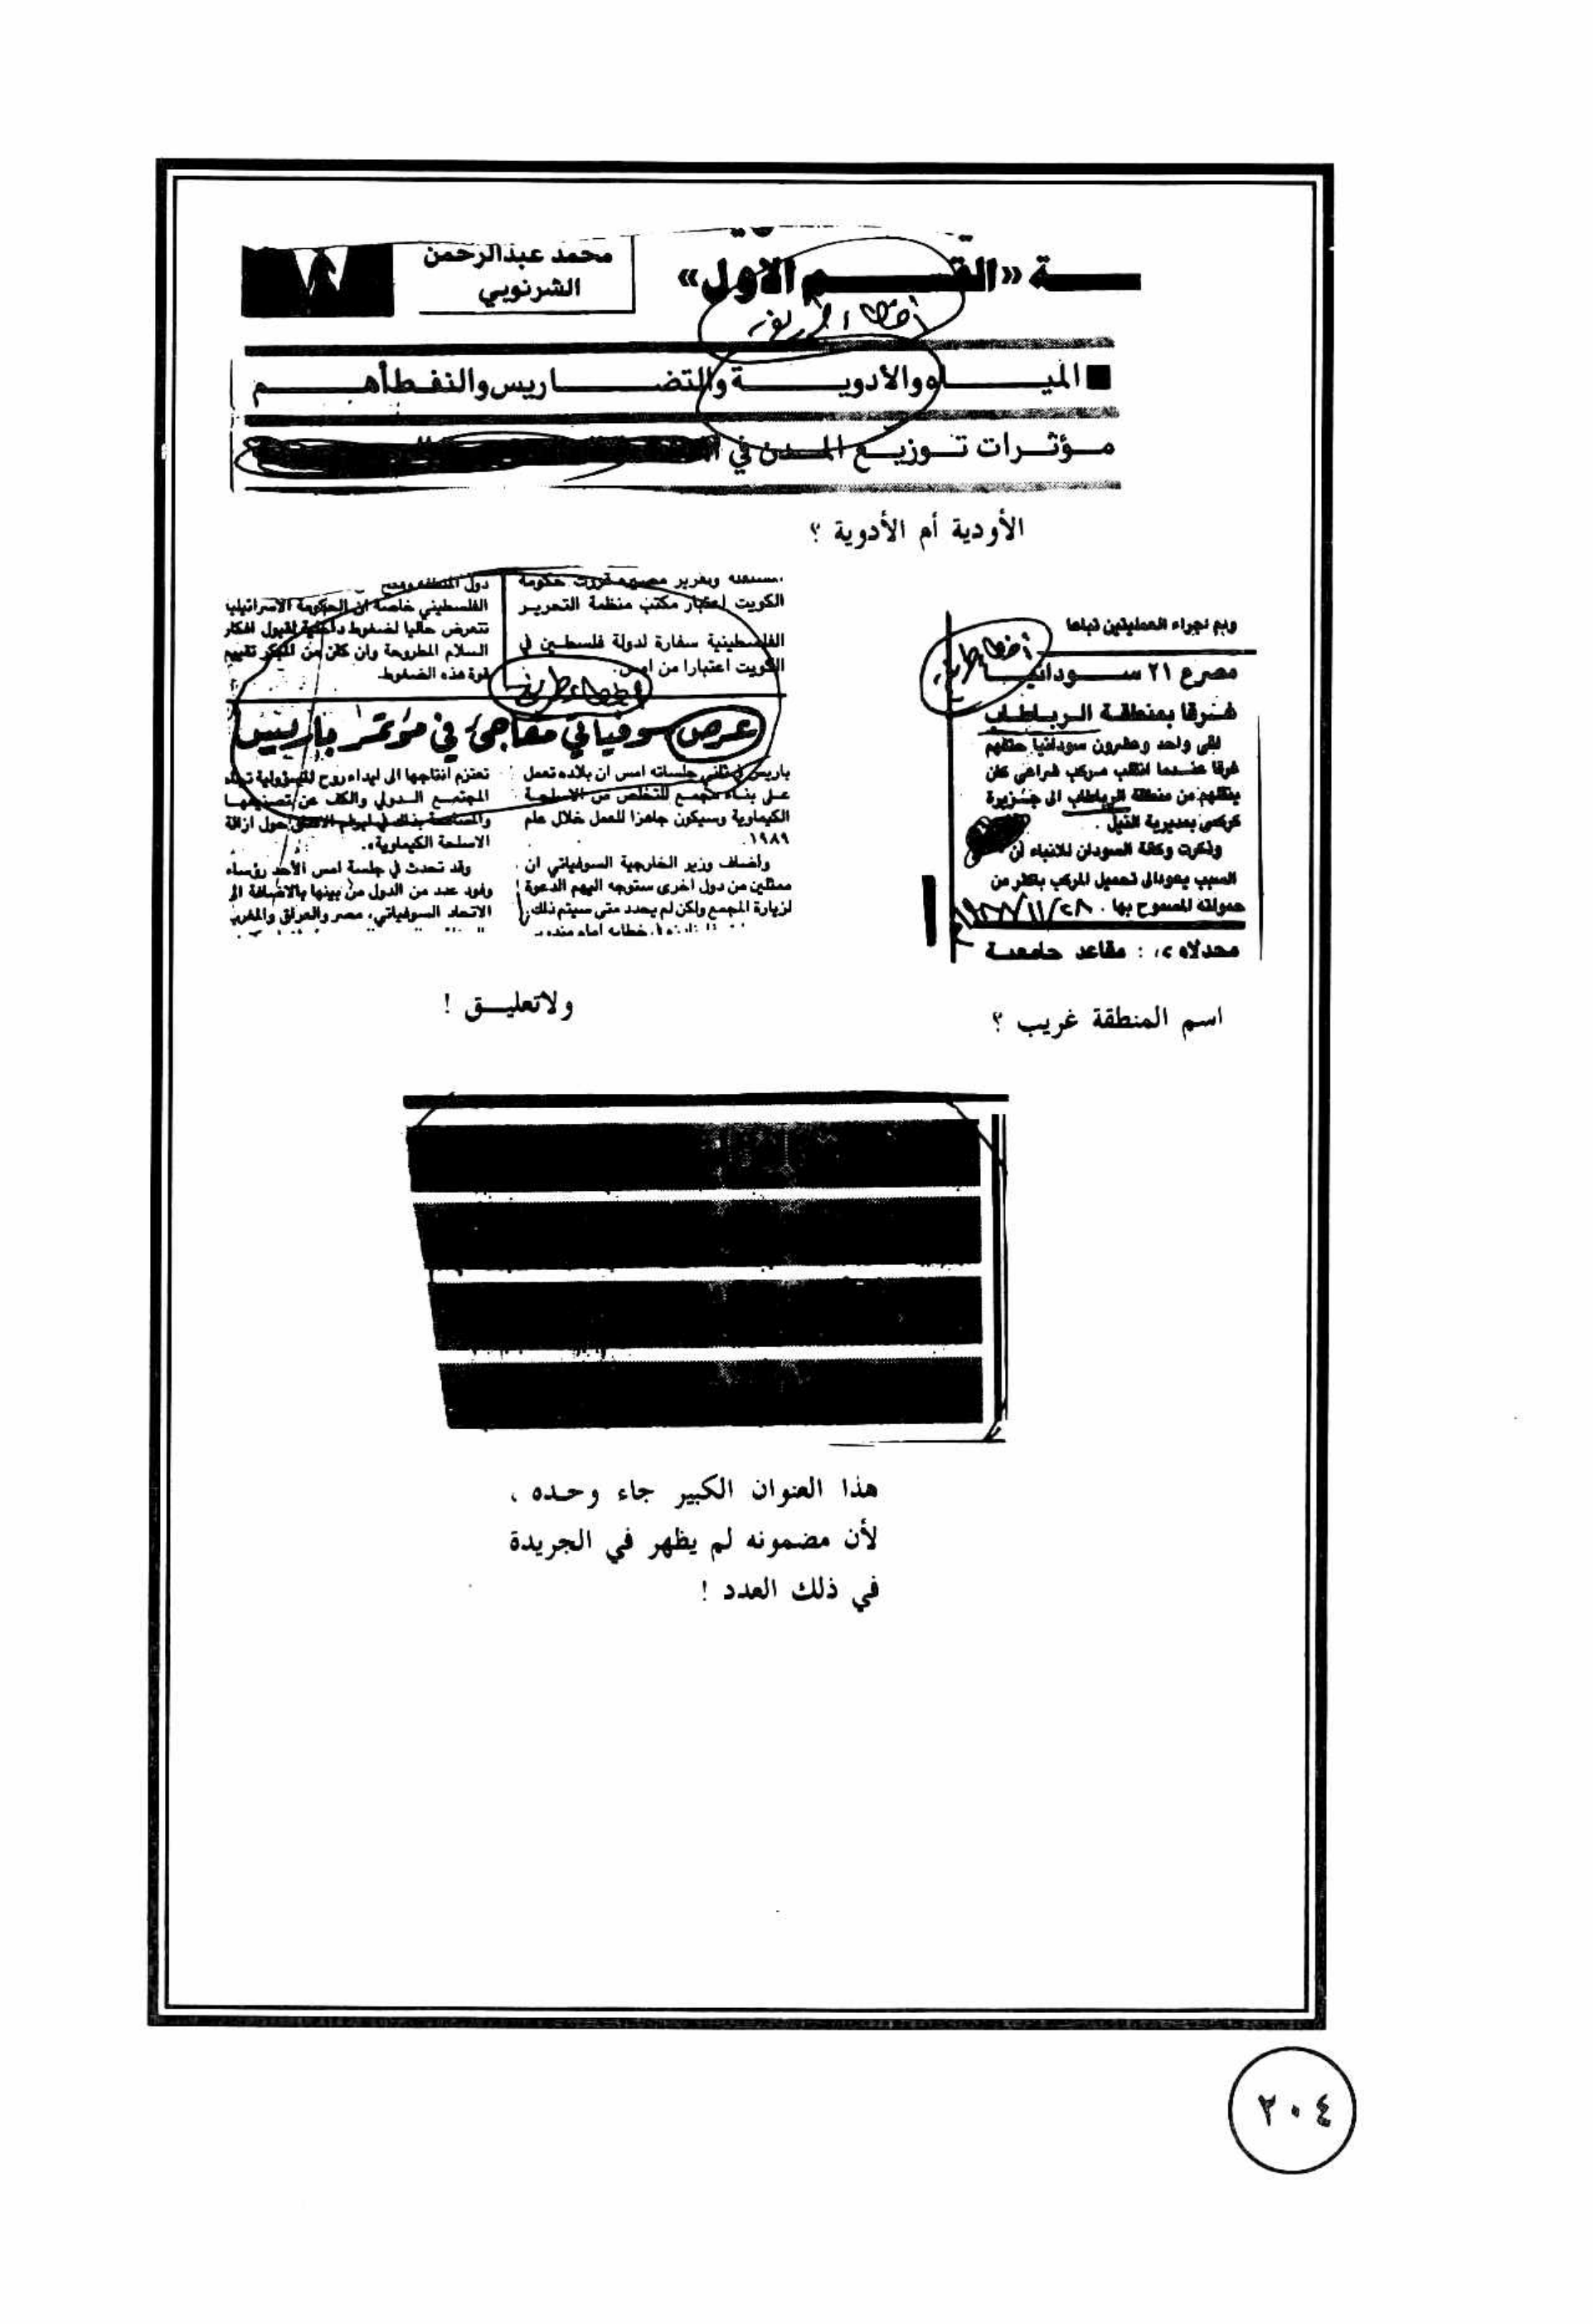 ـــة «القـــم الاول»
محمد عبدالرحمن
الشرنوبي
أخطاء
■ الميـــاه والادويـــة والتضـــاريس والنفط أهـــم
مـؤثـرات تـوزيـع المـدن في
الأودية أم الأدوية ؟
وبم اجراء العمليتين تباعا
مصرع ٢١ ســـودانيـــا
غـرقا بمنطقـة الـربـاطـاب
لقى واحد وعشرون سودانيا حتفهم
غرقا عنـدما انقلب مـركب شراعي كان
ينقلهم من منطقة الرباطاب الى جـزيرة
بمديرية النيل .
وذكرت وكالة السودان للانباء أن
السبب يعود الى تحميل المركب باكثر من
حمولته المسموح بها .
مقاعد جامعيـة
اسم المنطقة غريب ؟
وتقرير قررت حكومة
الكويت اعتبار مكتب منظمة التحريـر
الفلسطينية سفارة لدولة فلسطـين في
الكويت اعتبارا من امس.
دول المنطقة
الفلسطيني خاصة ان الحكومة الاسرائيلية
تتعرض حاليا لضغوط داخلية لقبول افكار
السلام المطروحة وان كان من المبكر تقييم
قوة هذه الضغوط.
أخطاء طريفة
عرص سوفياتي مفاجئ في مؤتمر باريس
باريس في ثاني جلساته امس ان بلاده تعمل
عـلى بنـاء مجمـع للتخلص من الاسلحـة
الكيماوية وسيكون جاهزا للعمل خلال عام
١٩٨٩.
واضـاف وزير الخارجية السوفياتي ان
ممثلين من دول اخرى ستوجه اليهم الدعوة
لزيارة المجمع ولكن لم يحدد متى سيتم ذلك.
تعتزم انتاجها الى ابداء روح المسؤولية تجاه
المجتمـع الـدولي والكف عن تصنيعهـا
حول ازالة
الاسلحة الكيماوية».
وقد تحدث في جلسة امس الأحد رؤساء
وفود عدد من الدول من بينها بالاضافة الى
الاتحاد السوفياتي، مصر والعراق والمغرب
ولاتعليـــق !
هذا العنوان الكبير جاء وحـده ،
لأن مضمونه لم يظهر في الجريدة
في ذلك العدد !
٢٠٤